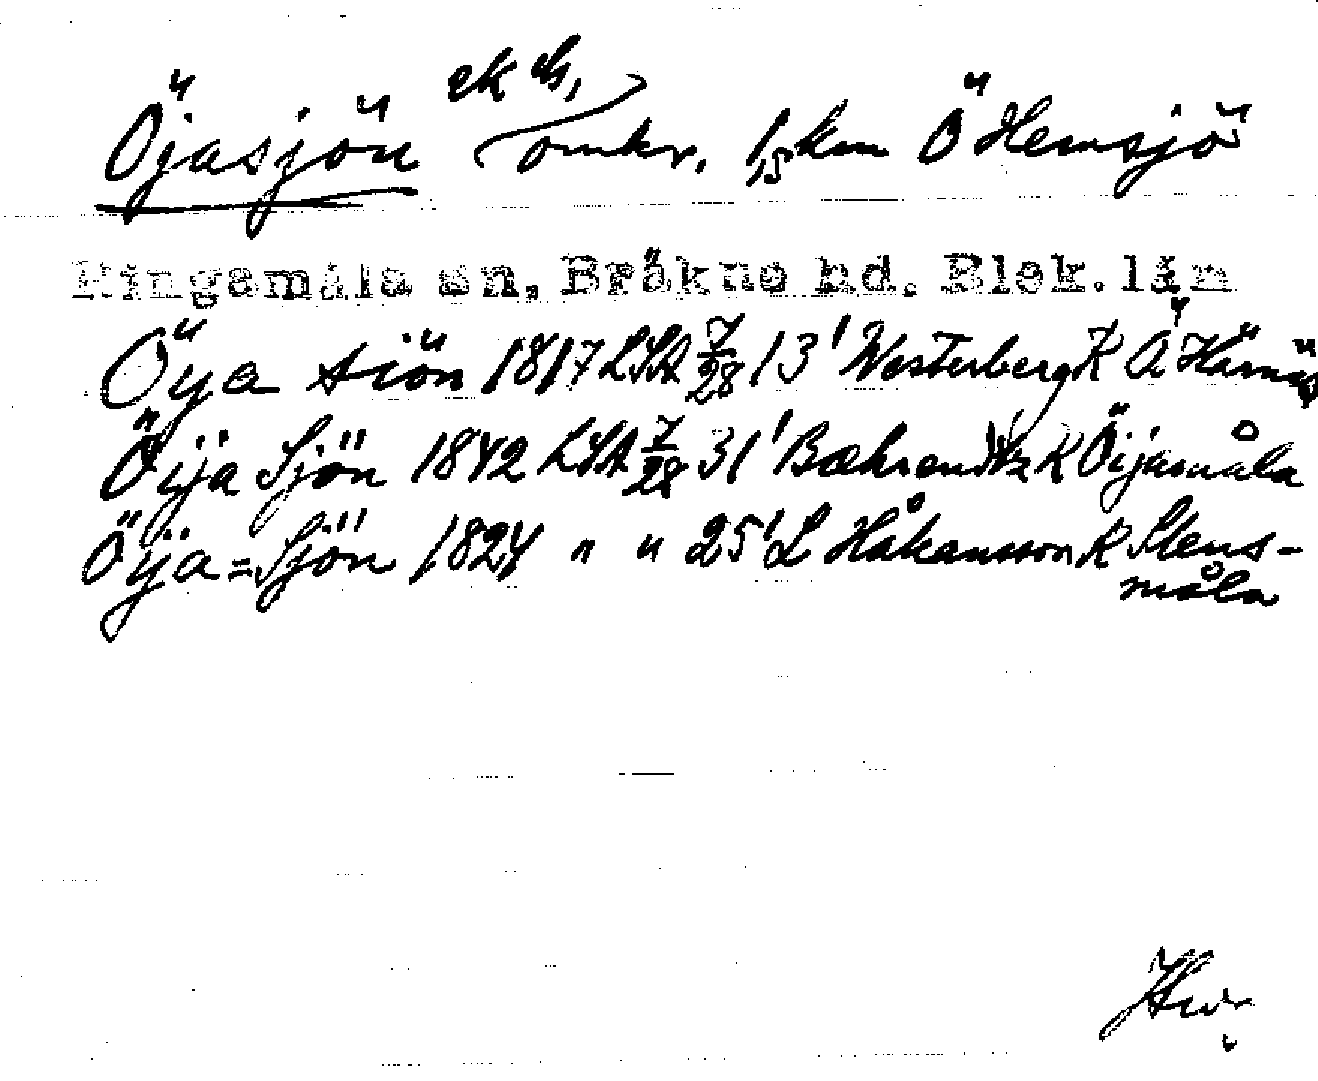 ek bl,
Öjasjön omkr. 1,5 km Ö Hemsjö
Ringamåla sn, Bräkne hd. Blek. län
Öya siön 1817 LSA 7/28 13' Westerberg K Å Härnäs
Öija Sjön 1842 LSA 7/28 31' Bæhrendtz K Öijamåla
Öija=Sjön 1824 " " 25' L Håkansson K Stens-
måla